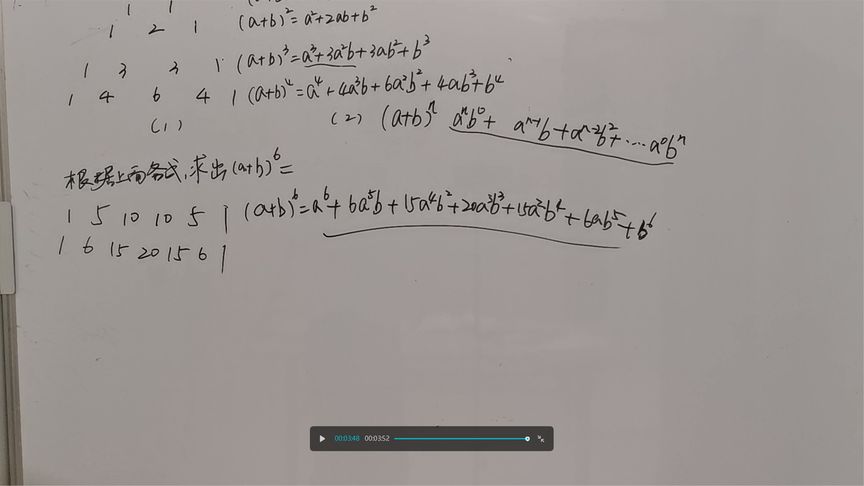 1 1
1 2 1 (a+b)²=a²+2ab+b²
1 3 3 1 (a+b)³=a³+3a²b+3ab²+b³
1 4 6 4 1 (a+b)⁴=a⁴+4a³b+6a²b²+4ab³+b⁴
(1) (2) (a+b)ⁿ aⁿb⁰+ aⁿ⁻¹b+aⁿ⁻²b²+…a⁰bⁿ
根据上面各式,求出(a+b)⁶=
1 5 10 10 5 1 (a+b)⁶=a⁶+6a⁵b+15a⁴b²+20a³b³+15a²b⁴+6ab⁵+b⁶
1 6 15 20 15 6 1
00:03:48 00:03:52